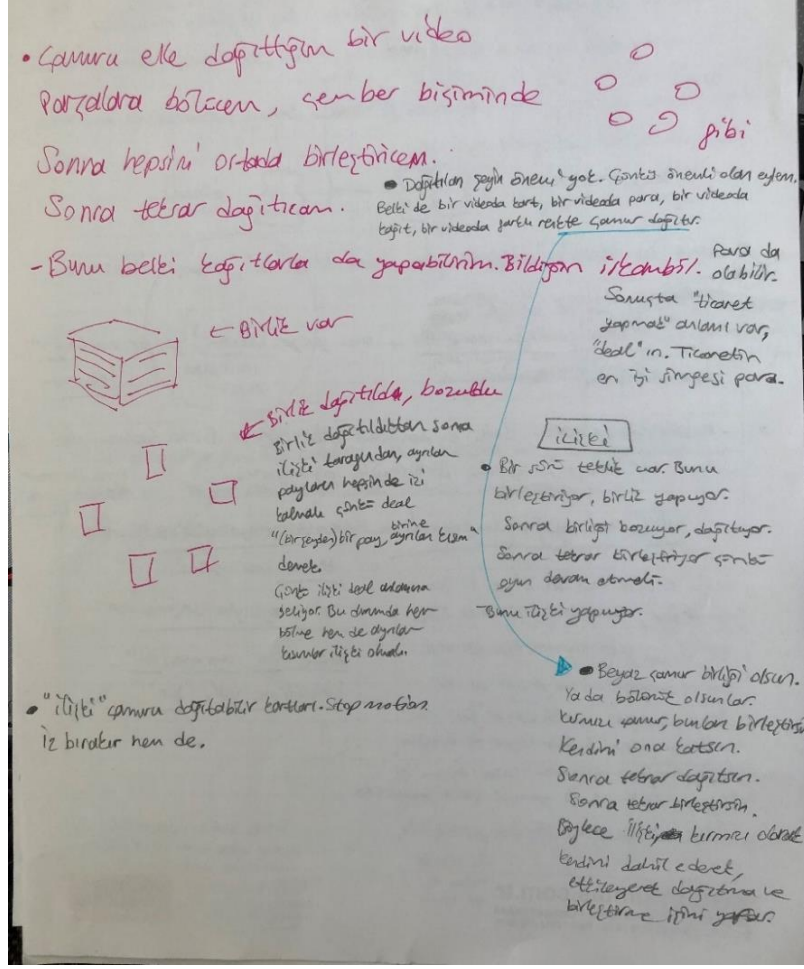 • Çamuru elle dağıttığım bir video
Parçalara bölücem, çember biçiminde
gibi
Sonra hepsini ortada birleştiricem.
Sonra tekrar dağıtıcam.
• Dağıtılan şeyin önemi yok. Çünkü önemli olan eylem.
Belki de bir videoda kart, bir videoda para, bir videoda
kağıt, bir videoda farklı renkte çamur dağıtır.
- Bunu belki kağıtlarla da yapabilirim. Bildiğim iskambil.
Para da
olabilir.
Sonuçta "ticaret
yapmak" anlamı var,
"deal"ın. Ticaretin
en iyi simgesi para.
← Birlik var
← Birlik dağıtıldı, bozuldu
Birlik dağıtıldıktan sonra
ilişki tarafından, ayrılan
payların hepsinde izi
kalmalı çünkü deal
"(birşeyden) bir pay, birine ayrılan kısım"
demek.
Çünkü ilişki deal anlamına
geliyor. Bu durumda hem
bölme hem de ayrılan
kısımlar ilişki olmalı.
ilişki
• Bir sürü teklik var. Bunu
birleştiriyor, birlik yapıyor.
Sonra birliği bozuyor, dağıtıyor.
Sonra tekrar birleştiriyor çünkü
oyun devam etmeli.
- Bunu ilişki yapıyor.
• "ilişki" çamuru dağıtabilir kartları. Stop motion.
İz bırakır hem de.
• Beyaz çamur birliği olsun.
Ya da bölünük olsunlar.
Kırmızı çamur, bunları birleştirsin
Kendini ona katsın.
Sonra tekrar dağıtsın.
Sonra tekrar birleştirsin.
Böylece ilişki kırmızı olarak
kendini dahil ederek,
etkileyerek dağıtma ve
birleştirme işini yapar.